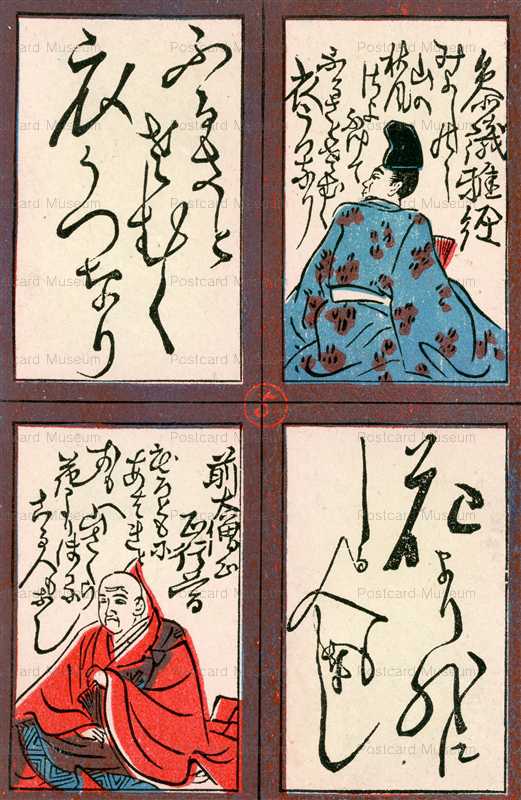 参議雅経
みよしのの
山の
秋風
さよふけて
ふるさとさむく
衣うつなり
ふるさと
さむく
衣うつなり
花より外に
しる人もなし
前大僧正
行尊
もろともに
あはれと
おもへ山さくら
花より外に
しる人もなし
Postcard Museum